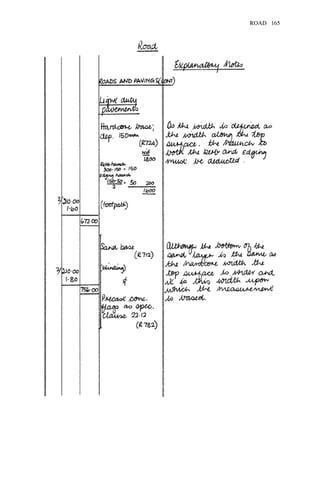 ROAD 165
Road
Explanatory Notes
ROADS AND PAVINGS (CONT)
Light duty
pavements
Hardcore base;
dep. 150mm
(R724)
wid
1800
300-150 = 150
edging haunch
= 50 200
1600
3/ 210.00
1.60
(footpath)
672.00
As the width is defined as
the width along the top
surface, the haunch to
both the kerb and edging
must be deducted.
Sand base
(R712)
3/ 210.00
1.80
(blinding)
&
756.00
Precast conc.
flags as spec.
Clause 22.12
(R782)
Although the bottom of the
sand layer is the same as
the hardcore width the
top surface is wider and
it is this width upon
which the measurement
is based.